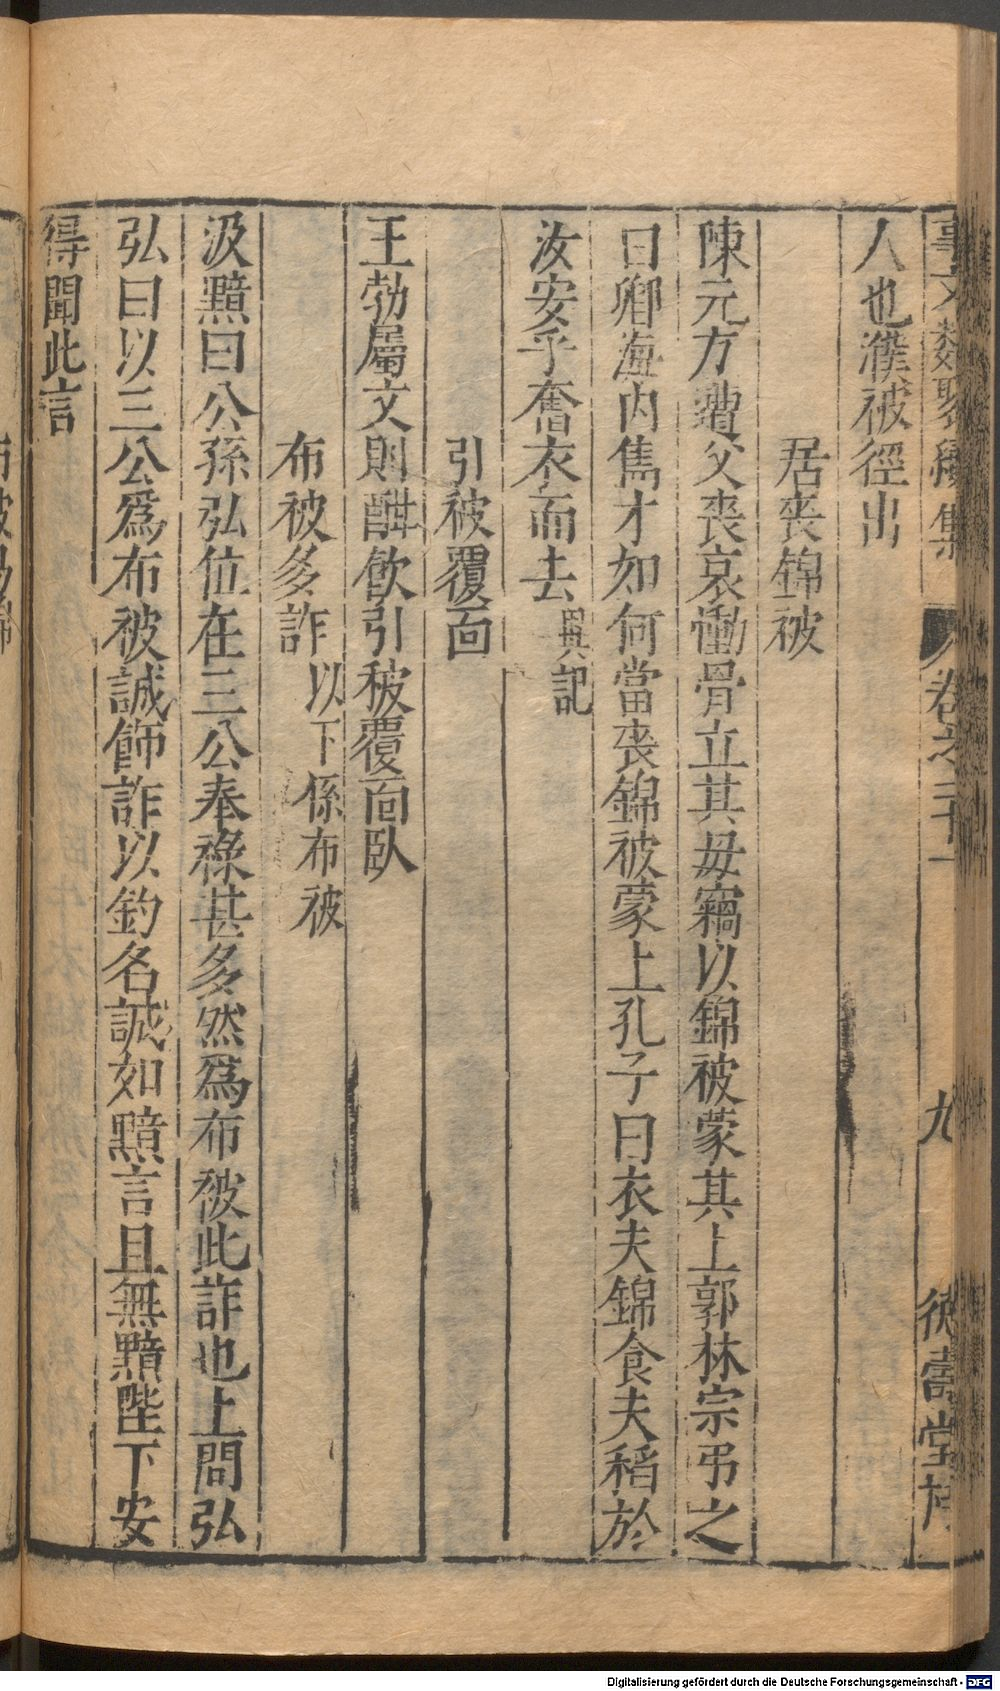 事文類聚續集 卷之二十一 九 德壽堂梓
人也濮被徑出
居喪錦被
陳元方遭父喪哀慟骨立其母竊以錦被蒙其上郭林宗弔之
曰卿海內雋才如何當喪錦被蒙上孔子曰衣夫錦食夫稻於
汝安乎奮衣而去 與記
引被覆面
王勃屬文則酣飲引被覆面臥
布被多詐 以下係布被
汲黯曰公孫弘位在三公奉祿甚多然爲布被此詐也上問弘
弘曰以三公爲布被誠飾詐以釣名誠如黯言且無黯陛下安
得聞此言
Digitalisierung gefördert durch die Deutsche Forschungsgemeinschaft - DFG